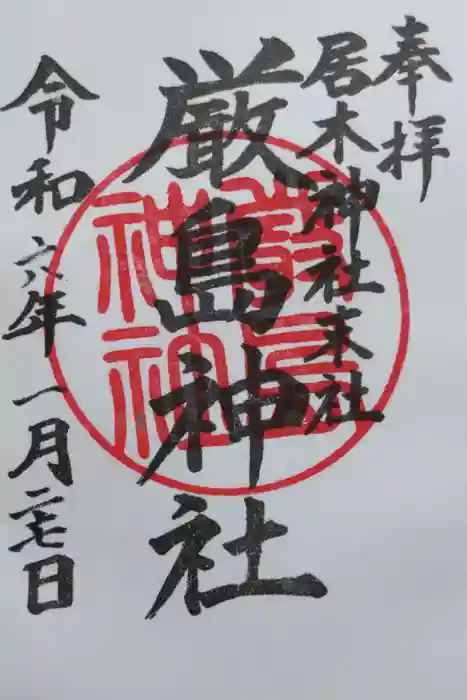 奉拝
居木神社末社
厳島神社
令和六年一月二七日
厳島
神社